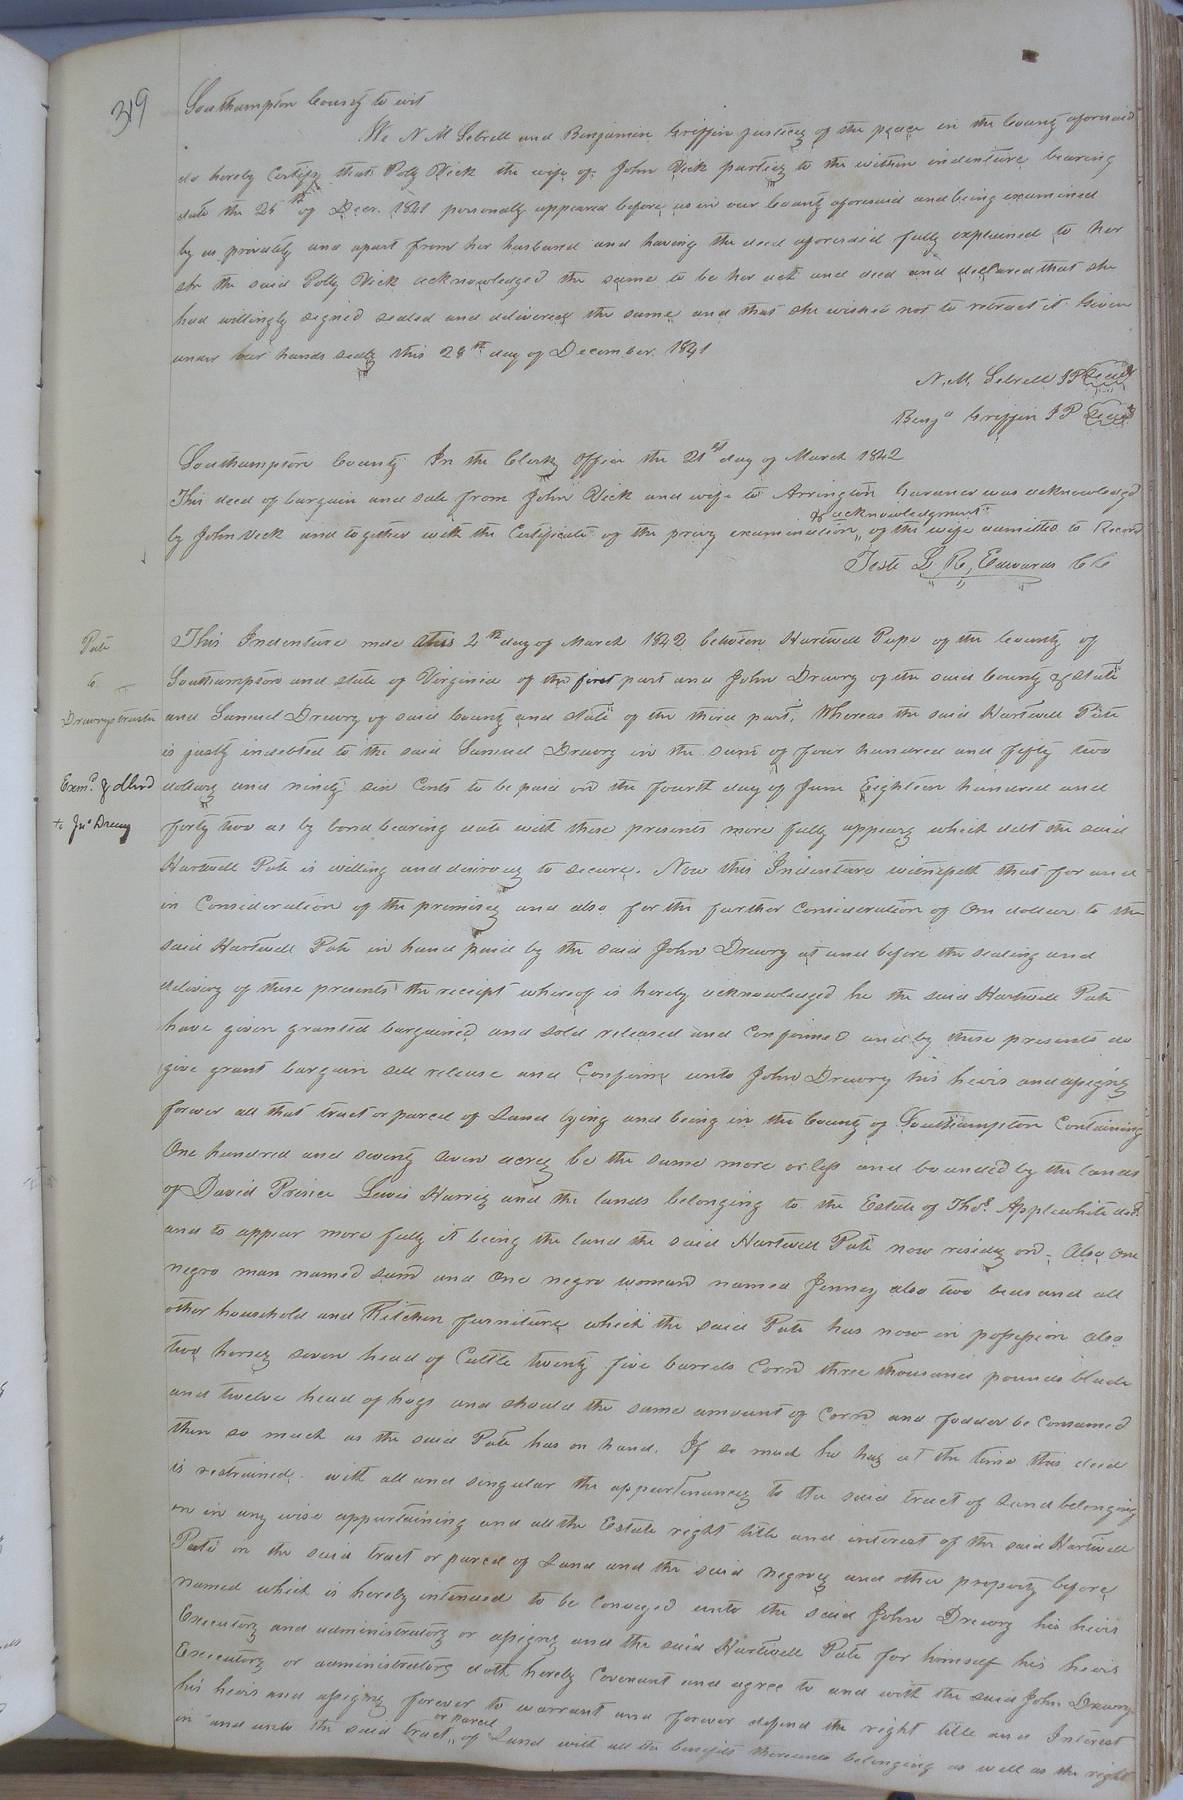 319
Southampton County to wit
We N M Sebrell and Benjamin Griffin justices of the peace in the County aforesaid
do hereby Certify that Polly Vick the wife of John Vick parties to the within indenture bearing
date the 28th of Decr. 1841 personally appeared before us in our County aforesaid and being examined
by us privately and apart from her husband and having the deed aforesaid fully explained to her
she the said Polly Vick acknowledged the same to be her act and deed and declared that she
had willingly signed sealed and delivered the same and that she wished not to retract it Given
under our hands seals this 28th day of December 1841
N. M. Sebrell JP Seal
Benja Griffin JP Seal
Southampton County In the Clerks Office the 21st day of March 1842
This deed of bargain and sale from John Vick and wife to Arrington was acknowledged
& acknowledgment
by John Vick and together with the Certificate of the privy examination of the wife admitted to Record
Teste L R, Edwards CC
Pate
to
Drewrys trustee
Exmd. & dlivd
to Jno Drewry
This Indenture mde this 4th day of March 1842 between Hartwell Pope of the County of
Southampton and state of Virginia of the first part and John Drewry of the said County & state
and Samuel Drewry of said County and state of the third part, Whereas the said Hartwell Pate
is justly indebted to the said Samuel Drewry in the sum of four hundred and fifty two
dollars and ninety six Cents to be paid on the fourth day of June Eighteen hundred and
forty two as by bond bearing date with these presents more fully appears which debt the said
Hartwell Pate is willing and desirous to secure. Now this Indenture witnesseth that for and
in Consideration of the premises and also for the further Consideration of One dollar to the
said Hartwell Pate in hand paid by the said John Drewry at and before the sealing and
delivery of these presents the receipt whereof is hereby acknowledged he the said Hartwell Pate
have given granted bargained and sold released and Confirmed and by these presents do
give grant bargain sell release and Confirm unto John Drewry his heirs and assigns
forever all that tract or parcel of Land lying and being in the County of Southampton Containing
One hundred and seventy seven acres be the same more or less and bounded by the lands
of David Prince Lewis Harris and the lands belonging to the Estate of Thos. Applewhite decd.
and to appear more fully it being the land the said Hartwell Pate now resides on. Also One
negro man named Sam and One negro woman named Jenney also two beds and all
other household and Kitchen furniture which the said Pate has now in possession also
two horses seven head of Cattle twenty five barrels Corn three thousand pounds blade
and twelve head of hogs and should the same amount of Corn and fodder be Consumed
then so much as the said Pate has on hand. If so much he has at the time this deed
is restrained. with all and singular the appurtenances to the said tract of Land belonging
or in any wise appurtaining and all the Estate right title and interest of the said Hartwell
Pate in the said tract or parcel of Land and the said negroes and other property before
named which is hereby intended to be Conveyed unto the said John Drewry his heirs
Executors and administrators or assigns and the said Hartwell Pate for himself his heirs
Executors or administrators doth hereby Covenant and agree to and with the said John Drewry
his heirs and assigns forever to warrant and forever defend the right title and Interest
or parcel
in and unto the said tract of Land with all the benefits thereunto belonging as well as the right